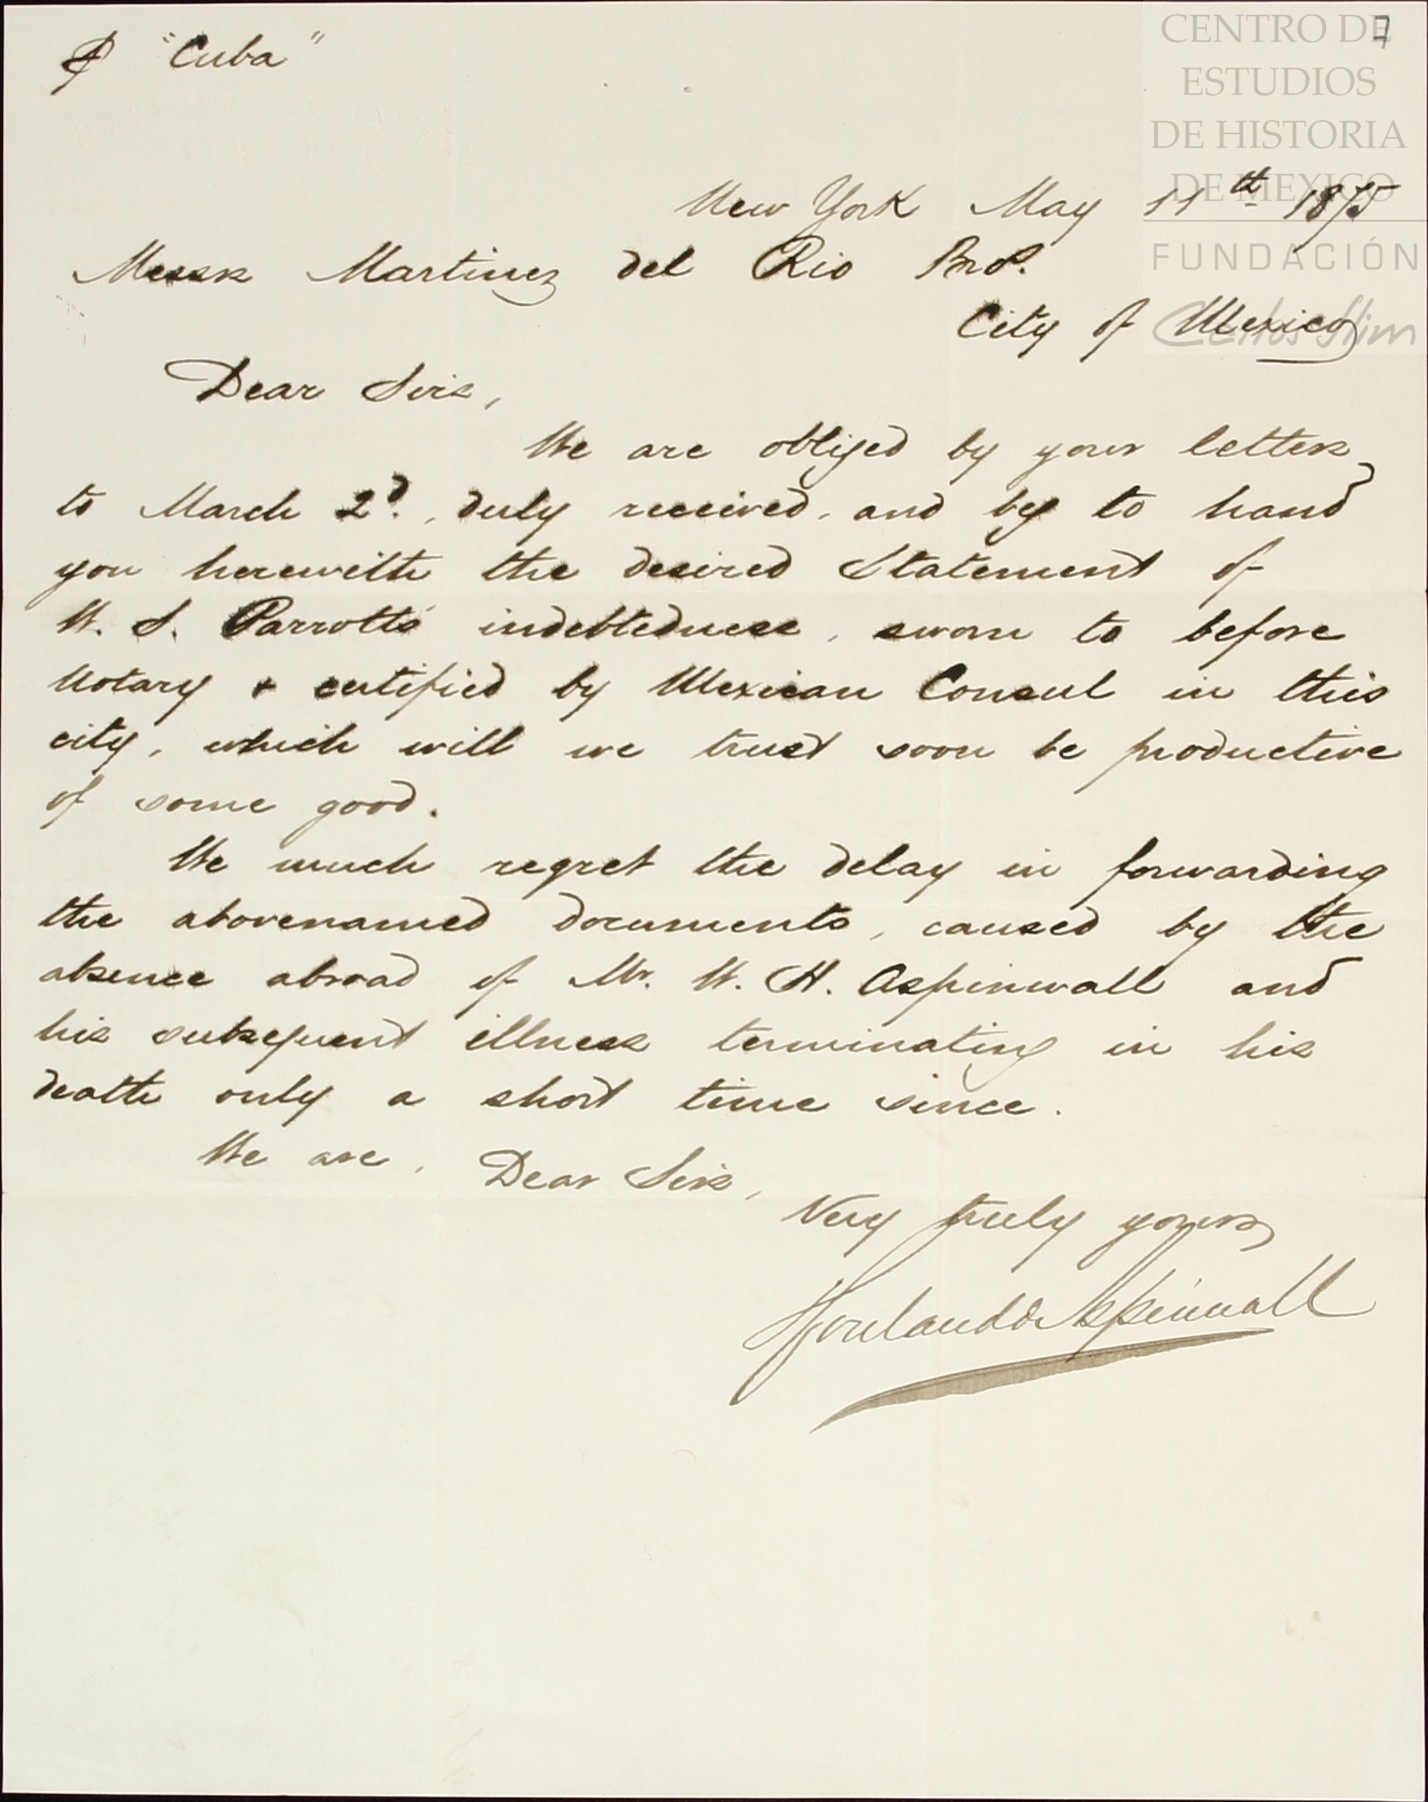 ℔ "Cuba"
7
CENTRO DE
ESTUDIOS
DE HISTORIA
DE MEXICO
FUNDACIÓN
Carlos Slim
New York May 11th 1875
Messrs Martinez del Rio Bros.
City of Mexico
Dear Sirs,
We are obliged by your letters
to March 2d., duly received, and beg to hand
you herewith the desired Statement of
W. S. Parrott's indebtedness, sworn to before
Notary & certified by Mexican Consul in this
city, which will we trust soon be productive
of some good.
We much regret the delay in forwarding
the abovenamed documents, caused by the
absence abroad of Mr. W. H. Aspinwall and
his subsequent illness terminating in his
death only a short time since.
We are, Dear Sirs,
Very truly yours,
Howland & Aspinwall